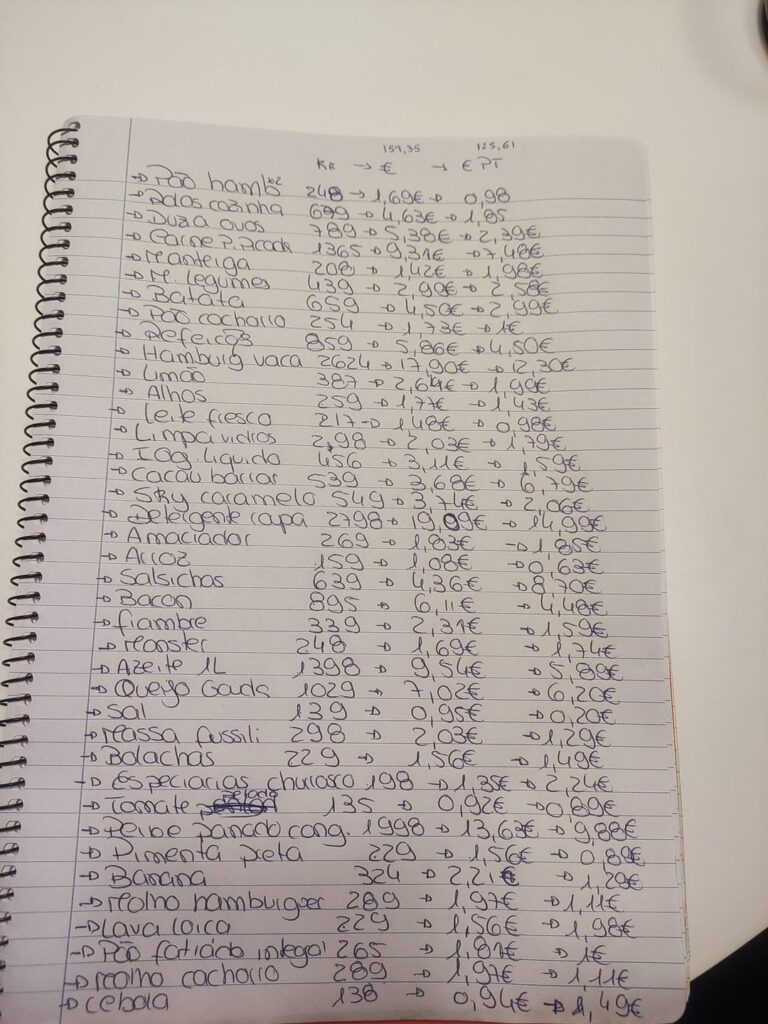 159,35 125,61
KR → € → € PT
→ Pão hamb x2 248 → 1,69€ → 0,98
→ Rolos cozinha 679 → 4,63€ → 1,85
→ Duzia ovos 789 → 5,38€ → 2,39€
→ Carne P. Picada 1365 → 9,31€ → 7,48€
→ Manteiga 208 → 1,42€ → 1,98€
→ M. legumes 439 → 2,99€ → 2,58€
→ Batata 659 → 4,50€ → 2,99€
→ Pão cachorro 254 → 1,73€ → 1€
→ Refeicões 859 → 5,86€ → 4,50€
→ Hamburg vaca 2624 → 17,90€ → 2,30€
→ Limão 387 → 2,64€ → 1,99€
→ Alhos 259 → 1,77€ → 1,43€
→ Leite fresco 217 → 1,48€ → 0,98€
→ Limpa vidros 2,98 → 2,03€ → 1,79€
→ Iog. liquido 456 → 3,11€ → 1,59€
→ Cacau barrar 539 → 3,68€ → 6,79€
→ Sky caramelo 549 → 3,74€ → 2,06€
→ Detergente roupa 2798 → 19,09€ → 14,99€
→ Amaciador 269 → 1,83€ → 1,85€
→ Arroz 159 → 1,08€ → 0,63€
→ Salsichas 639 → 4,36€ → 8,70€
→ Bacon 895 → 6,11€ → 4,48€
→ fiambre 339 → 2,31€ → 1,59€
→ Monster 248 → 1,69€ → 1,74€
→ Azeite 1L 1398 → 9,54€ → 5,89€
→ Queijo Gouda 1029 → 7,02€ → 6,20€
→ Sal 139 → 0,95€ → 0,20€
→ Massa fussili 298 → 2,03€ → 1,29€
→ Bolachas 229 → 1,56€ → 1,49€
→ Especiarias churasco 198 → 1,35€ → 2,24€
→ Tomate pelado 135 → 0,92€ → 0,89€
→ Peixe panado cong. 1998 → 13,63€ → 9,88€
→ Pimenta preta 229 → 1,56€ → 0,89€
→ Banana 324 → 2,21€ → 1,29€
→ Molho hamburguer 289 → 1,97€ → 1,11€
→ Lava loica 229 → 1,56€ → 1,98€
→ Pão fatiado integral 265 → 1,81€ → 1€
→ Molho cachorro 289 → 1,97€ → 1,11€
→ Cebola 138 → 0,94€ → 1,49€